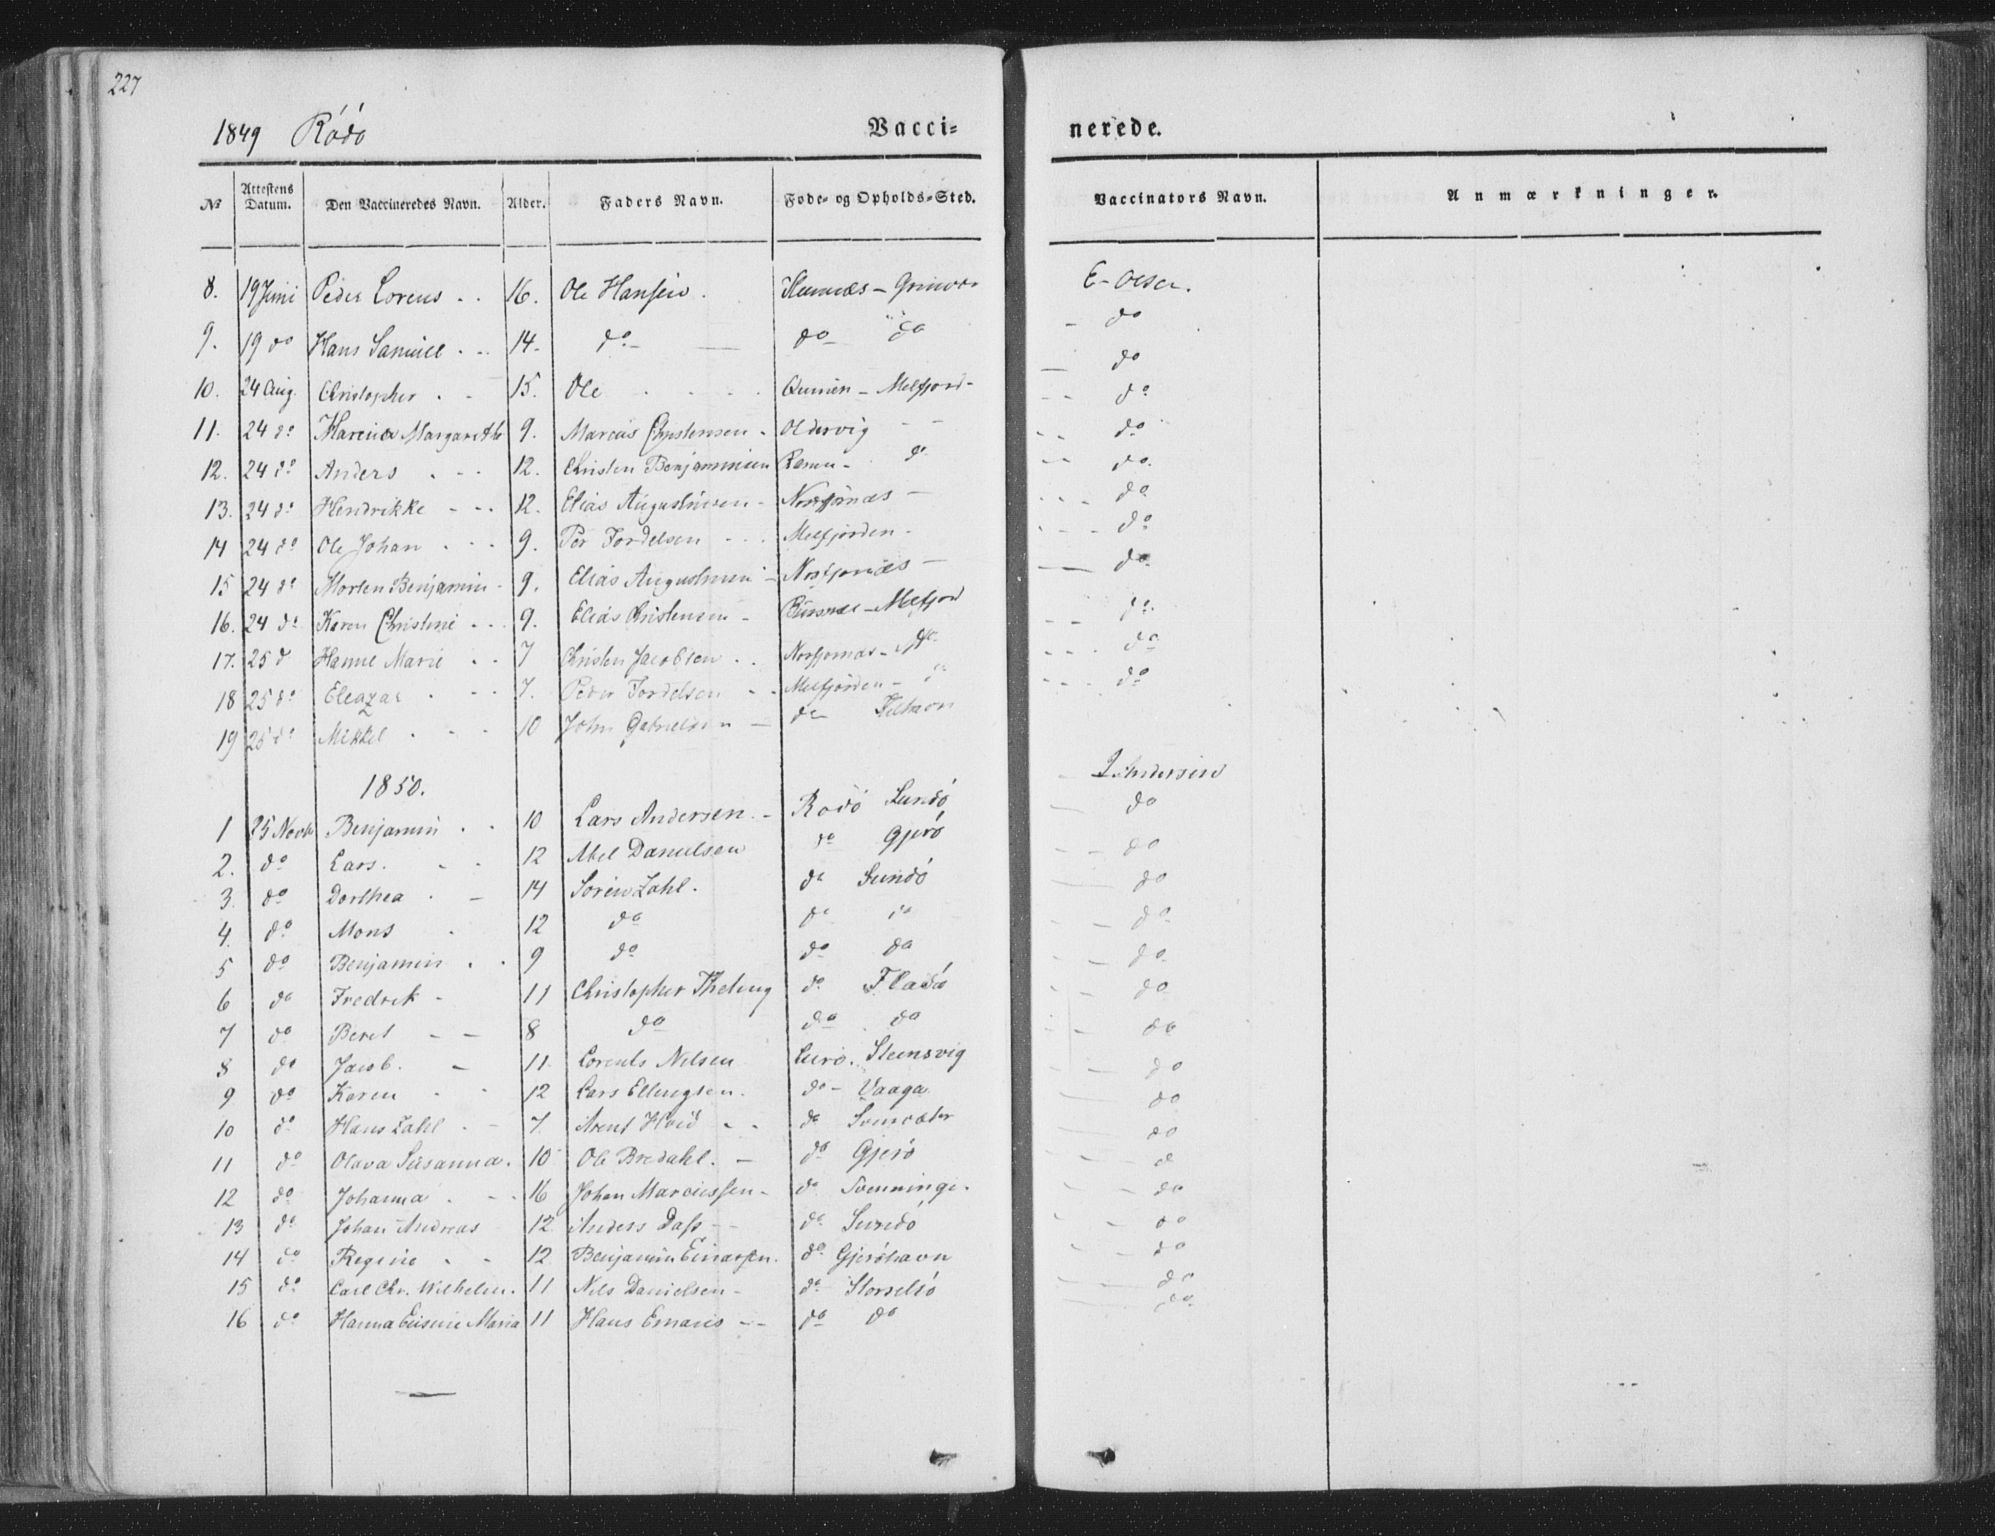 227
1849 Rödö Vacci= nerede.
No Attestens Datum. Den Vaccineredes Navn. Alder. Faders Navn. Føde= og Opholds=Sted. Vaccinators Navn. Anmærkninger.
8. 19 Juni Peder Lorens 16. Ole Hansen E. Olsen.
9. 19 do Hans Samuel 14 do do do do
10. 24 Aug. Christopher 15. Ole Melfjord do
11. 24 do Margarethe 9. Marcus Christensen Oldervig do
12. 24 do Anders 12. Christen Benjaminsen do do
13. 24 do Hendrikke 12. Elias Augustinsen do
14 24 do Ole Johan 9. Per Jordelsen Melfjorden do
15 24 do Morten Benjamin 9. Elias do
16. 24 do Karen Christine 9. Elias Christensen Melfjord do
17. 25 d Hanne Marie 7 Christen Jacobsen do do
18 25 do Eleazar 7. Peder Jordelsen Melfjorden do
19 25 do Mikkel 10 John do do
1850.
1 25 Novb Benjamin 10 Lars Andersen Rödö Sundö Andersen
2. do Lars. 12 Abel Danielsen do Gjerö do
3. do Dorthea 14 Sören Zahl. do Sundö do
4. do Mons 12 do do do do
5 do Benjamin 9 do do do do
6 do Fredrik 11 Christopher do do
7 do Beret 8 do do do do
8 do Jacob. 11 Lorents Nilsen Lurö. Stensvig do
9 do Karen 12 Lars Ellingsen. do Vaaga do
10 do Hans Zahl 7. Arent Hvid do do
11 do Olava Susanna. 10 Ole Bredahl. do Gjerö do
12 do Johanna 16 Johan Marcussen do do
13 do Johan Andreas 12 Anders Dass do Sundö do
14 do Regine 12 Benjamin Einarsen. do Gjeröhavn do
15 do Carl Chr. Wilhelm. 11 Nils Danielsen do Storselsö do
16 do Hanna Maria 11 Hans do do do